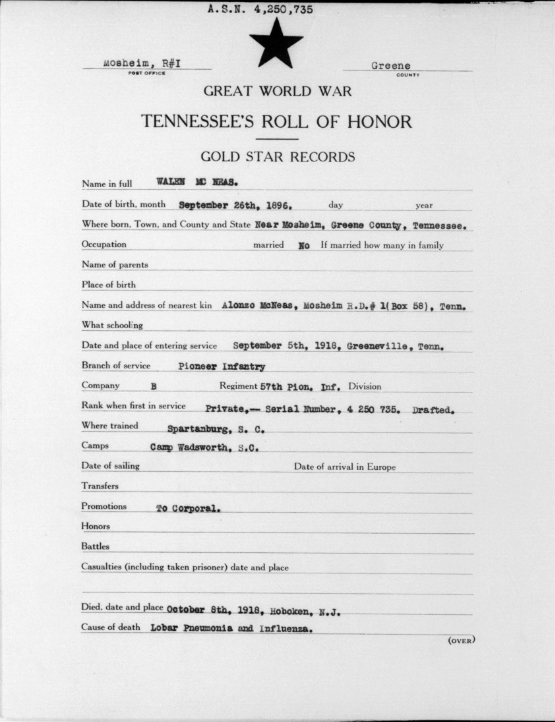 A.S.N. 4,250,735
Mosheim, R#I Greene
POST OFFICE COUNTY
GREAT WORLD WAR
TENNESSEE'S ROLL OF HONOR
GOLD STAR RECORDS
Name in full WALEN MC NEAS.
Date of birth, month September 26th, 1896. day year
Where born, Town, and County and State Near Mosheim, Greene County, Tennessee.
Occupation married No If married how many in family
Name of parents
Place of birth
Name and address of nearest kin Alonzo McNeas, Mosheim R.D.# 1(Box 58), Tenn.
What schooling
Date and place of entering service September 5th, 1918, Greeneville, Tenn.
Branch of service Pioneer Infantry
Company B Regiment 57th Pion. Inf. Division
Rank when first in service Private,— Serial Number, 4 250 735. Drafted.
Where trained Spartanburg, S. C.
Camps Camp Wadsworth, S.C.
Date of sailing Date of arrival in Europe
Transfers
Promotions To Corporal.
Honors
Battles
Casualties (including taken prisoner) date and place
Died, date and place October 8th, 1918, Hoboken, N.J.
Cause of death Lobar Pneumonia and Influenza.
(OVER)